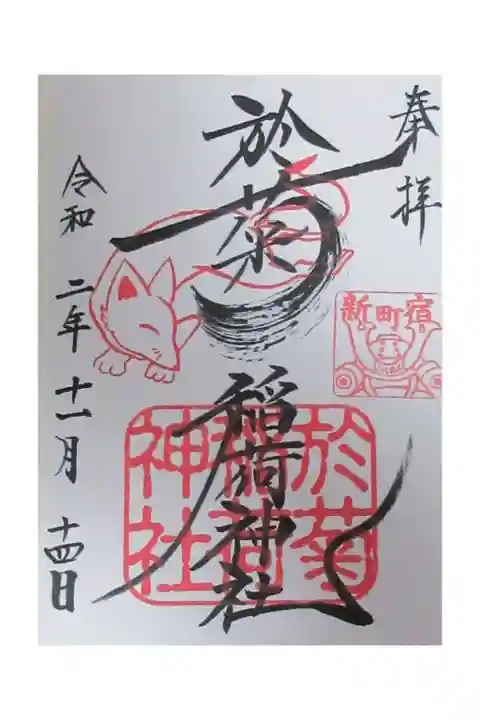 奉拝
新町宿
於菊
稲荷神社
於菊
稲荷
神社
令和二年十一月十四日